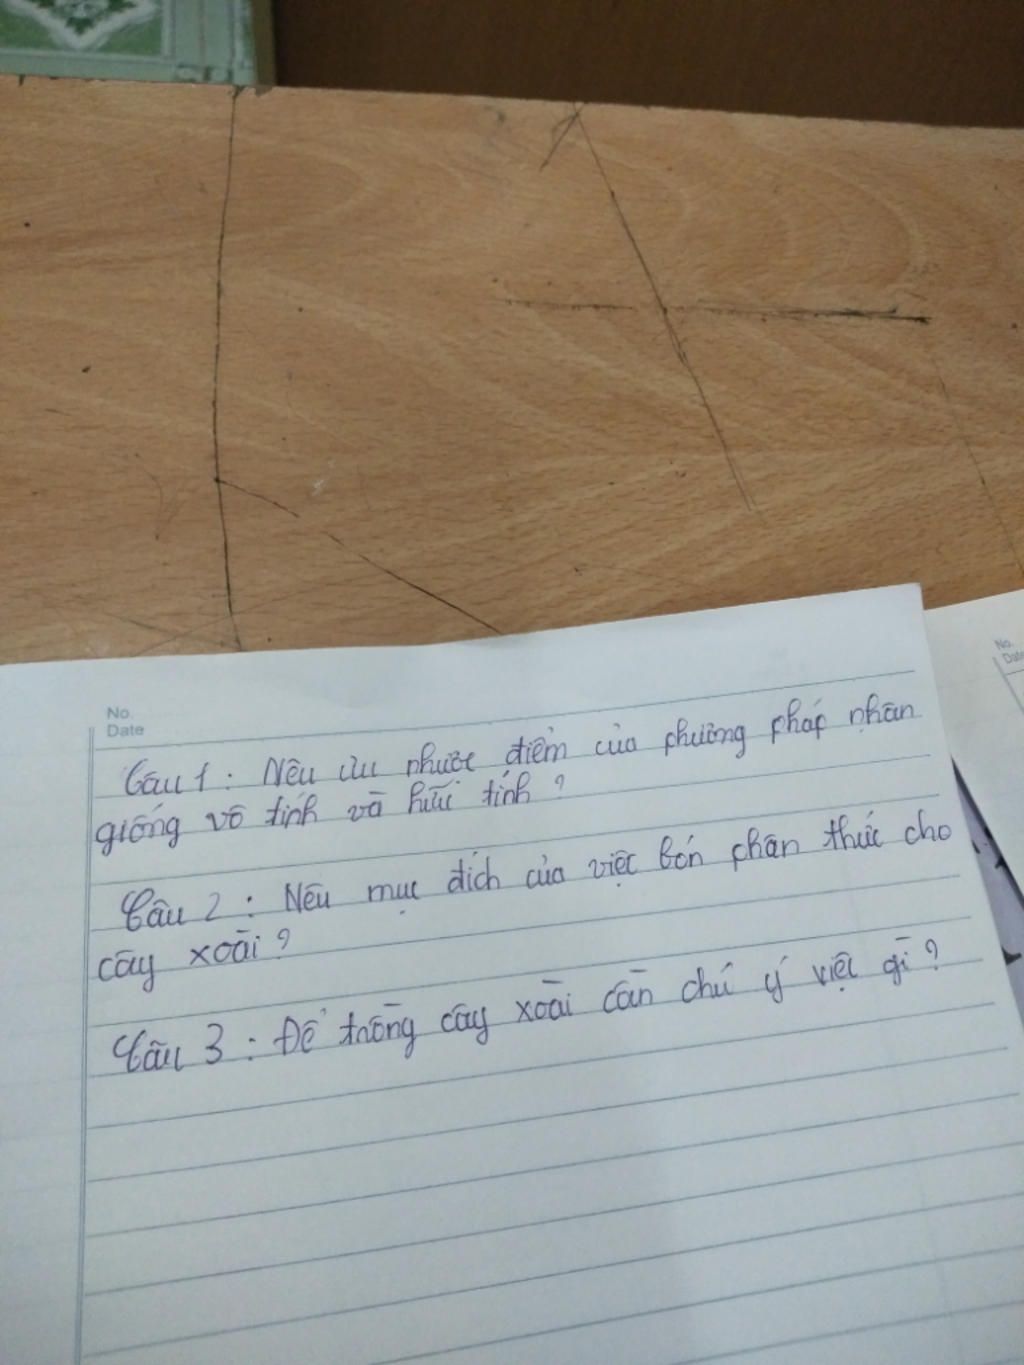 No.
Date
Câu 1 : Nêu ưu nhược điểm của phương pháp nhân
giống vô tính và hữu tính ?
Câu 2 : Nêu mục đích của việc bón phân thúc cho
cây xoài ?
Câu 3 : Để trồng cây xoài cần chú ý việc gì ?
No.
Date